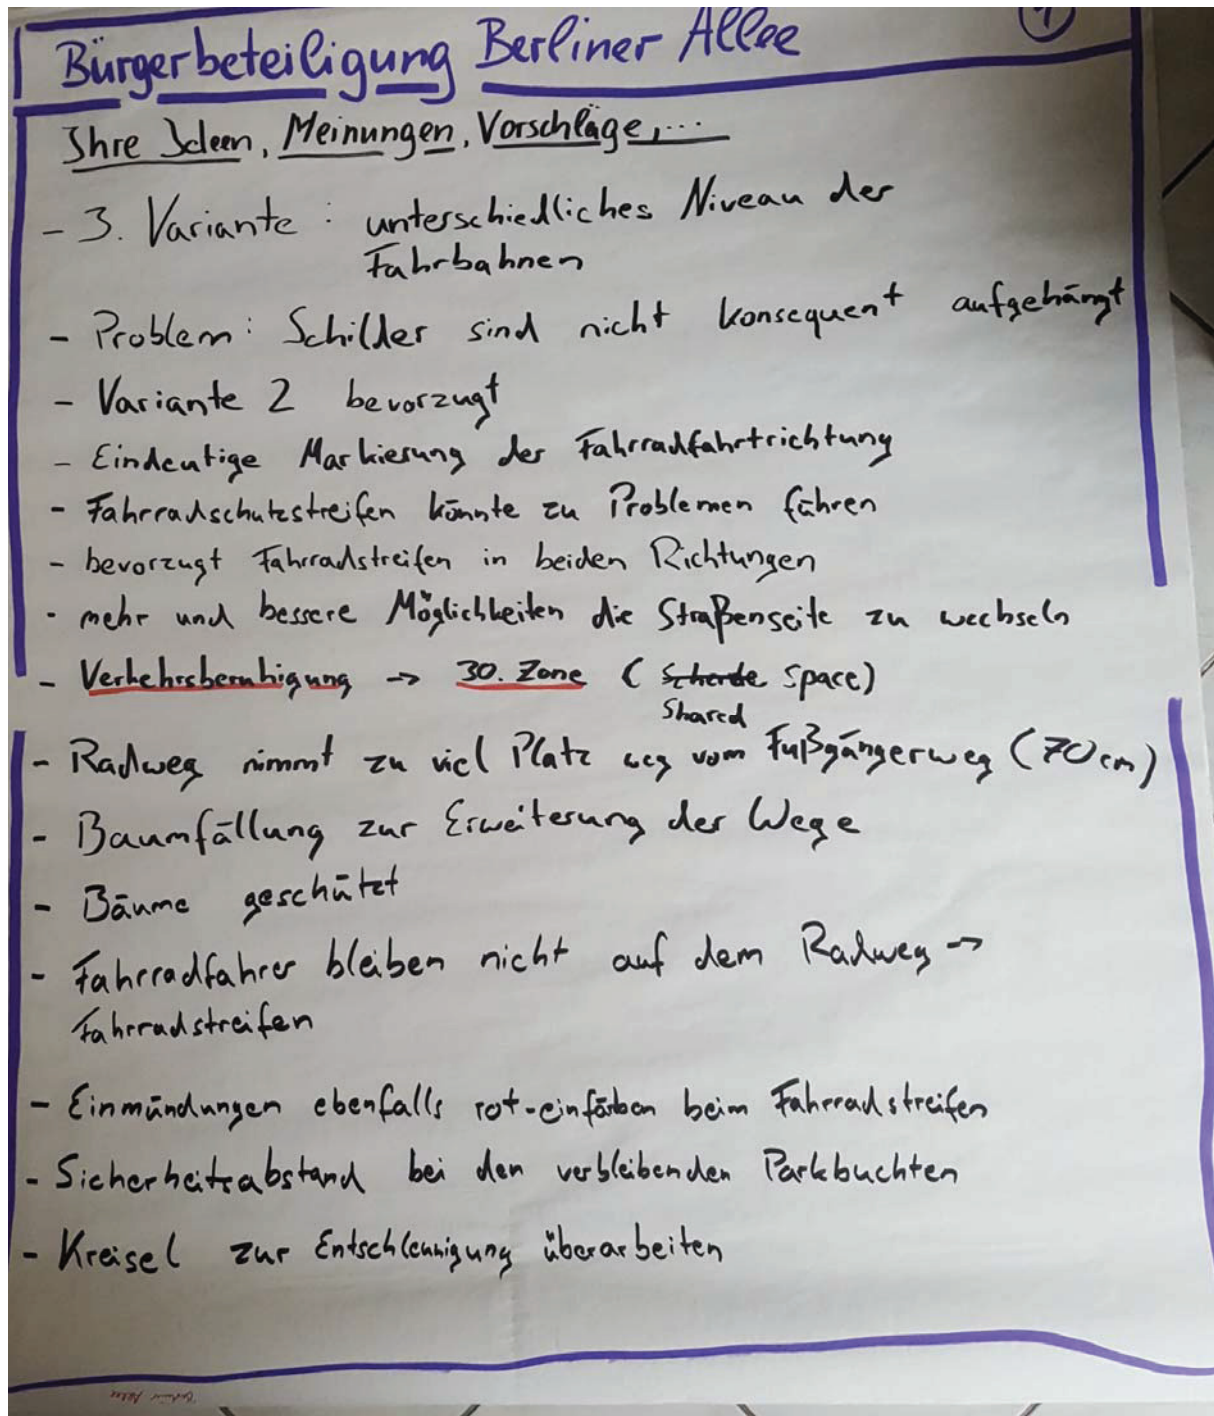 1
Bürgerbeteiligung Berliner Allee
Ihre Ideen, Meinungen, Vorschläge,...
- 3. Variante : unterschiedliches Niveau der
Fahrbahnen
- Problem: Schilder sind nicht konsequent aufgehängt
- Variante 2 bevorzugt
- Eindeutige Markierung der Fahrradfahrtrichtung
- Fahrradschutzstreifen könnte zu Problemen führen
- bevorzugt Fahrradstreifen in beiden Richtungen
- mehr und bessere Möglichkeiten die Straßenseite zu wechseln
- Verkehrsberuhigung → 30. Zone ( Space)
Shared
- Radweg nimmt zu viel Platz weg vom Fußgängerweg (70cm)
- Baumfällung zur Erweiterung der Wege
- Bäume geschützt
- Fahrradfahrer bleiben nicht auf dem Radweg →
Fahrradstreifen
- Einmündungen ebenfalls rot-einfärben beim Fahrradstreifen
- Sicherheitsabstand bei den verbleibenden Parkbuchten
- Kreisel zur Entschleunigung überarbeiten